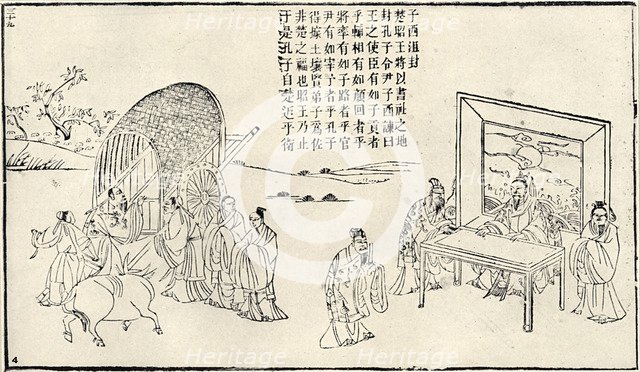 子西沮封
楚昭王將以書社之地
封孔子令尹子西諫曰
王之使臣有如子貢者
乎輔相有如顏回者乎
將率有如子路者乎官
尹有如宰予者乎孔子
得據土壤賢弟子爲佐
非楚之福也昭王乃止
于是孔子自楚返乎衛
4
Heritage
Heritage
Heritage
Heritage